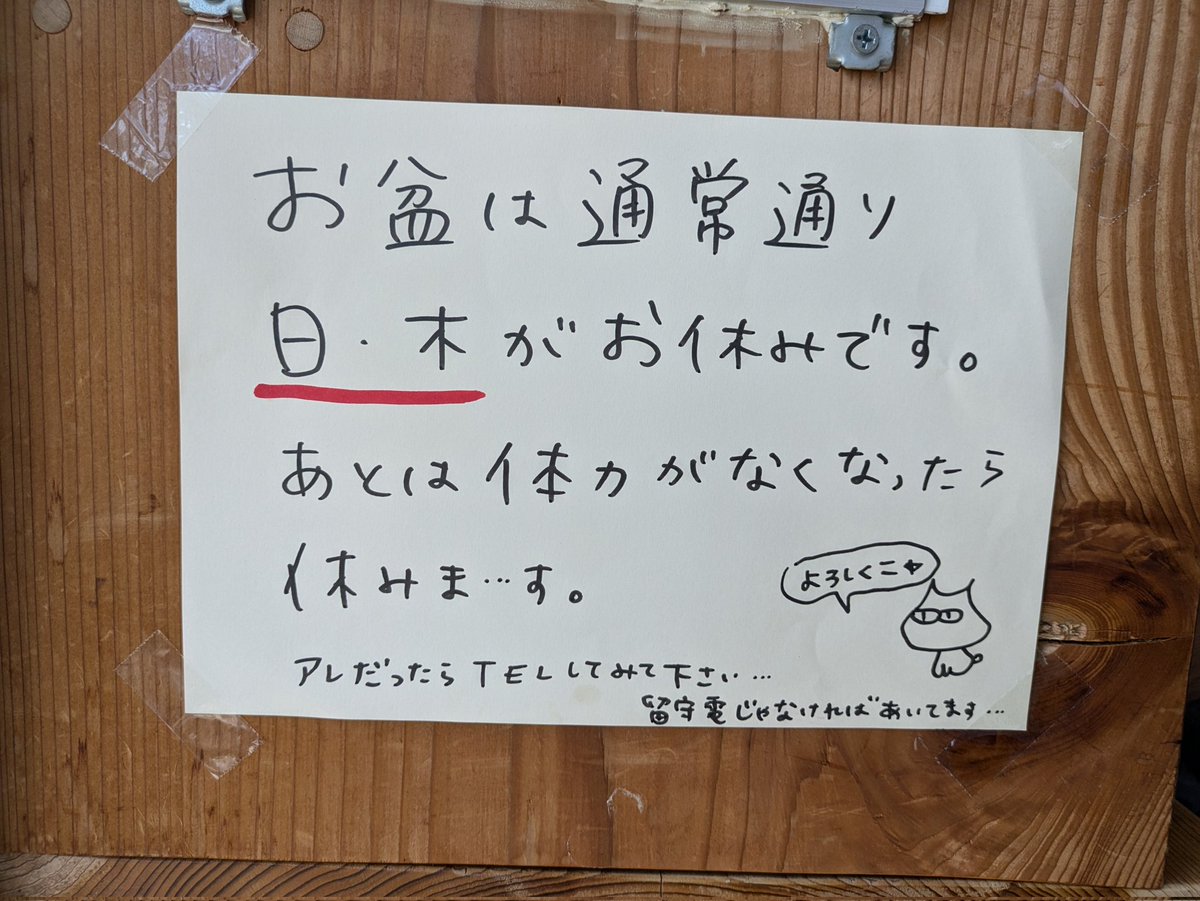 お盆は通常通り
日・木がお休みです。
あとは体力がなくなったら
休みま…す。
よろしくニャ
アレだったらTELしてみて下さい…
留守電じゃなければあいてます…